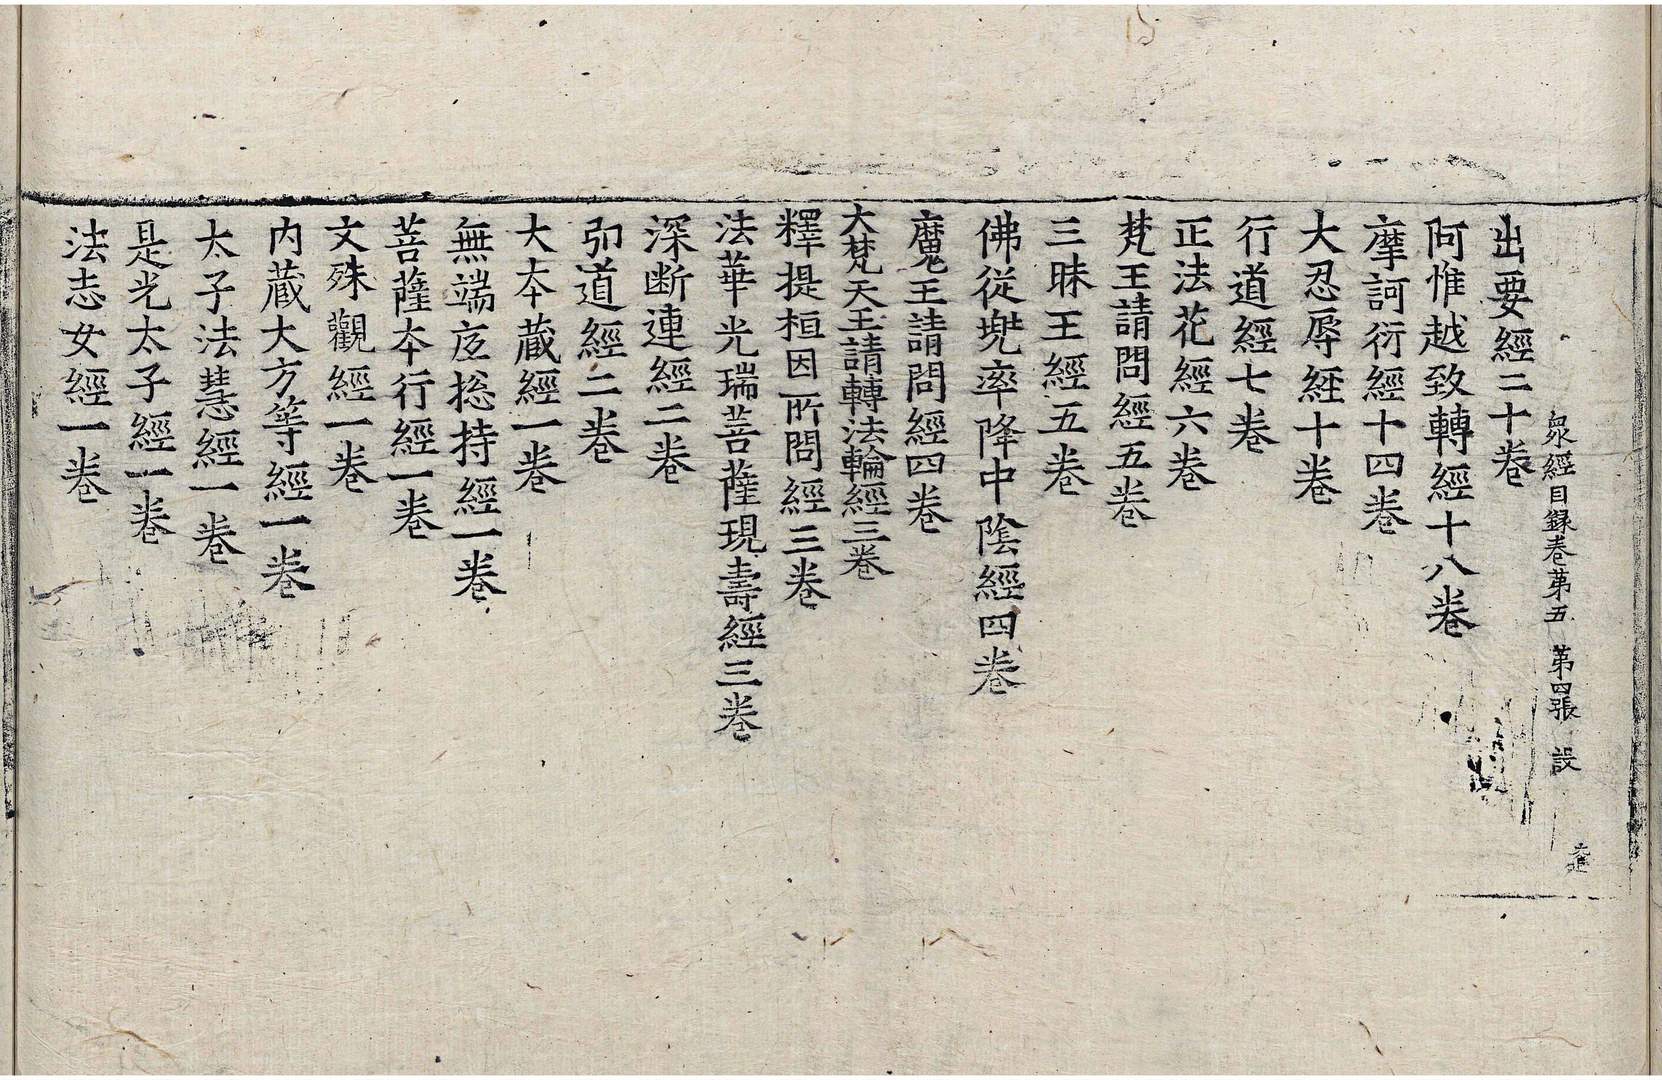 衆經目録卷苐五 苐四張 設
出要經二十卷
阿惟越致轉經十八卷
摩訶衍經十四卷
大忍辱經十卷
行道經七卷
正法花經六卷
梵王請問經五卷
三昧王經五卷
佛從兜率降中陰經四卷
魔王請問經四卷
大梵天王請轉法輪經三卷
釋提桓因所問經三卷
法華光瑞菩薩現壽經三卷
深断連經二卷
卯道經二卷
大本藏經一卷
無端底捴持經一卷
菩薩本行經一卷
文殊觀經一卷
内藏大方等經一卷
太子法慧經一卷
是光太子經一卷
法志女經一卷